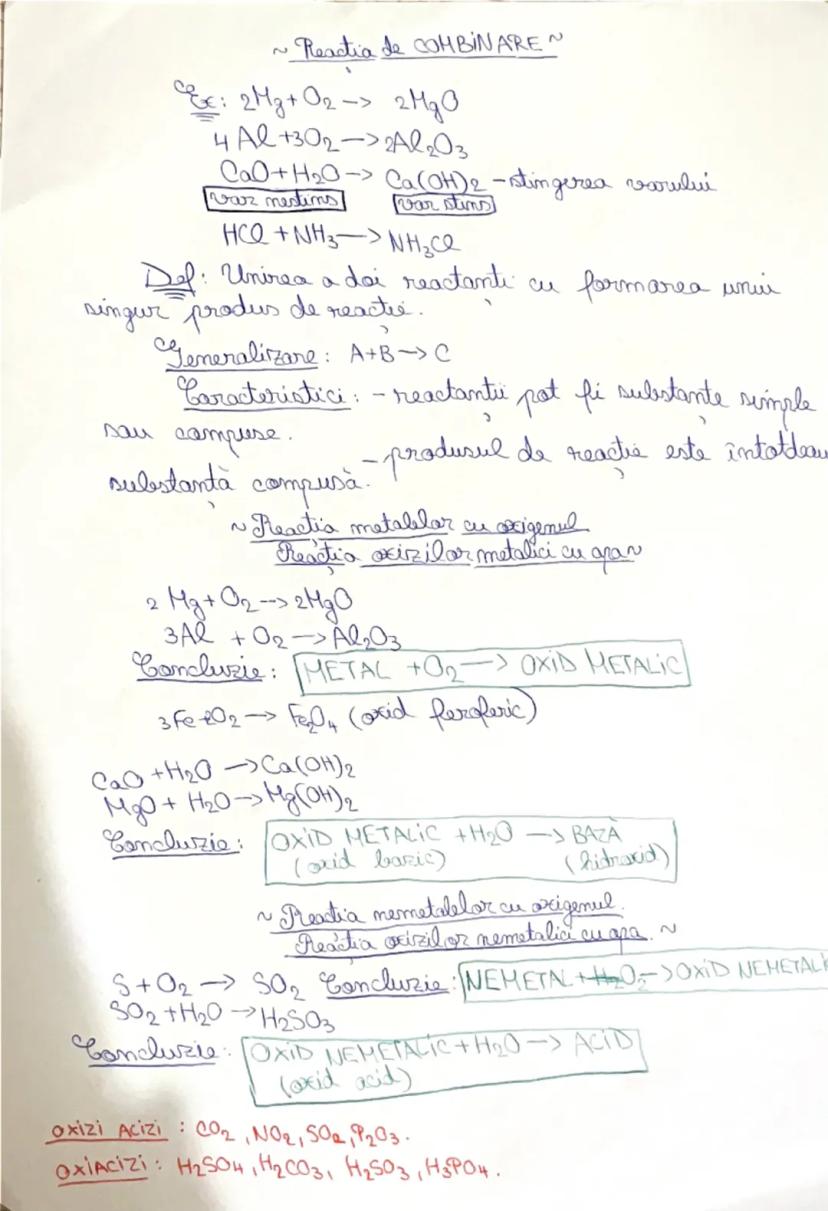 ~ Reactia de COMBINARE ~
Ex: 2Mg + O2 -> 2MgO
4 Al +3O2 -> 2Al2O3
CaO + H2O -> Ca(OH)2 - stingerea varului
var nestins var stins
HCl + NH3 -> NH3Cl
Def: Unirea a doi reactanți cu formarea unui
singur produs de reacție.
Generalizare: A+B -> C
Caracteristici: - reactanții pot fi substanțe simple
sau compuse.
- produsul de reacție este întotdeau
substanță compusă.
~ Reactia metalelor cu oxigenul
Reacția oxizilor metalici cu apa ~
2 Mg + O2 -> 2MgO
3Al + O2 -> Al2O3
Concluzie: METAL + O2 -> OXiD METALiC
3Fe +2O2 -> Fe2O4 (oxid feroferic)
CaO + H2O -> Ca(OH)2
MgO + H2O -> Mg(OH)2
Concluzie: OXiD METALiC + H2O -> BAZĂ
(oxid bazic) (hidroxid)
~ Reactia nemetalelor cu oxigenul.
Reacția oxizilor nemetalici cu apa. ~
S + O2 -> SO2 Concluzie: NEMETAL + O2 -> OXiD NEMETALi
SO2 + H2O -> H2SO3
Concluzie: OXiD NEMETALiC + H2O -> ACiD
(oxid acid)
OXiZi ACiZi : CO2, NO2, SO2, P2O3.
OXiACiZi : H2SO4, H2CO3, H2SO3, H3PO4.